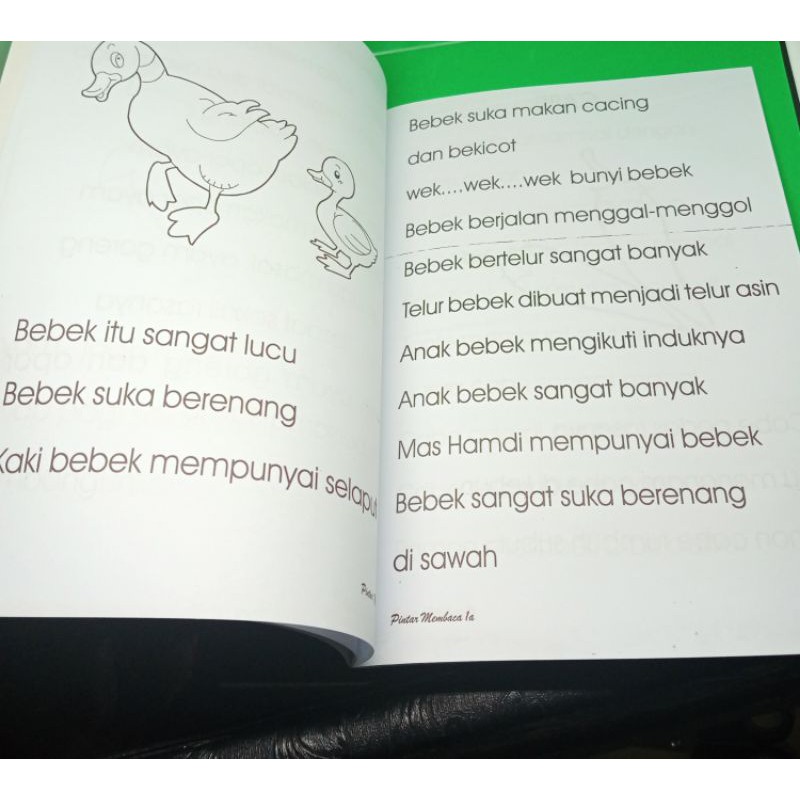 Bebek itu sangat lucu
Bebek suka berenang
Kaki bebek mempunyai selaput
Bebek suka makan cacing
dan bekicot
wek....wek....wek bunyi bebek
Bebek berjalan menggal-menggol
Bebek bertelur sangat banyak
Telur bebek dibuat menjadi telur asin
Anak bebek mengikuti induknya
Anak bebek sangat banyak
Mas Hamdi mempunyai bebek
Bebek sangat suka berenang
di sawah
Pintar Membaca 1a